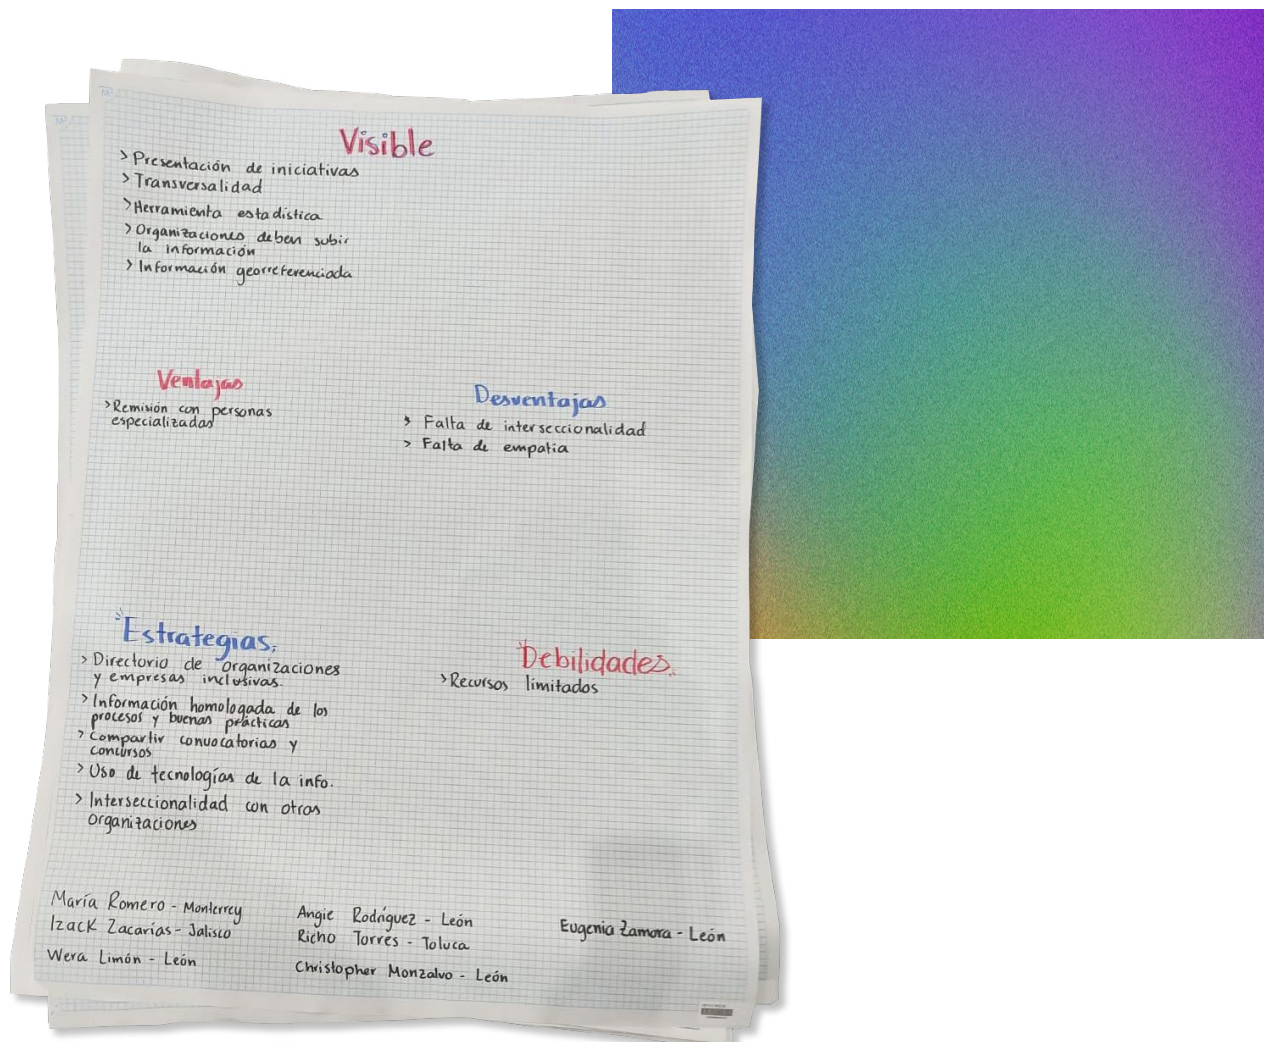 Visible
> Presentación de iniciativas
> Transversalidad
> Herramienta estadística
> Organizaciones deben subir
la información
> Información georreferenciada
Ventajas
> Remisión con personas
especializadas
Desventajas
> Falta de interseccionalidad
> Falta de empatia
Estrategias.
> Directorio de organizaciones
y empresas inclusivas.
> Información homologada de los
procesos y buenas prácticas
> Compartir convocatorias y
concursos
> Uso de tecnologías de la info.
> Interseccionalidad con otras
organizaciones
Debilidades.
> Recursos limitados
María Romero - Monterrey
Izack Zacarías - Jalisco
Wera Limón - León
Angie Rodríguez - León
Richo Torres - Toluca
Christopher Monzalvo - León
Eugenia Zamora - León